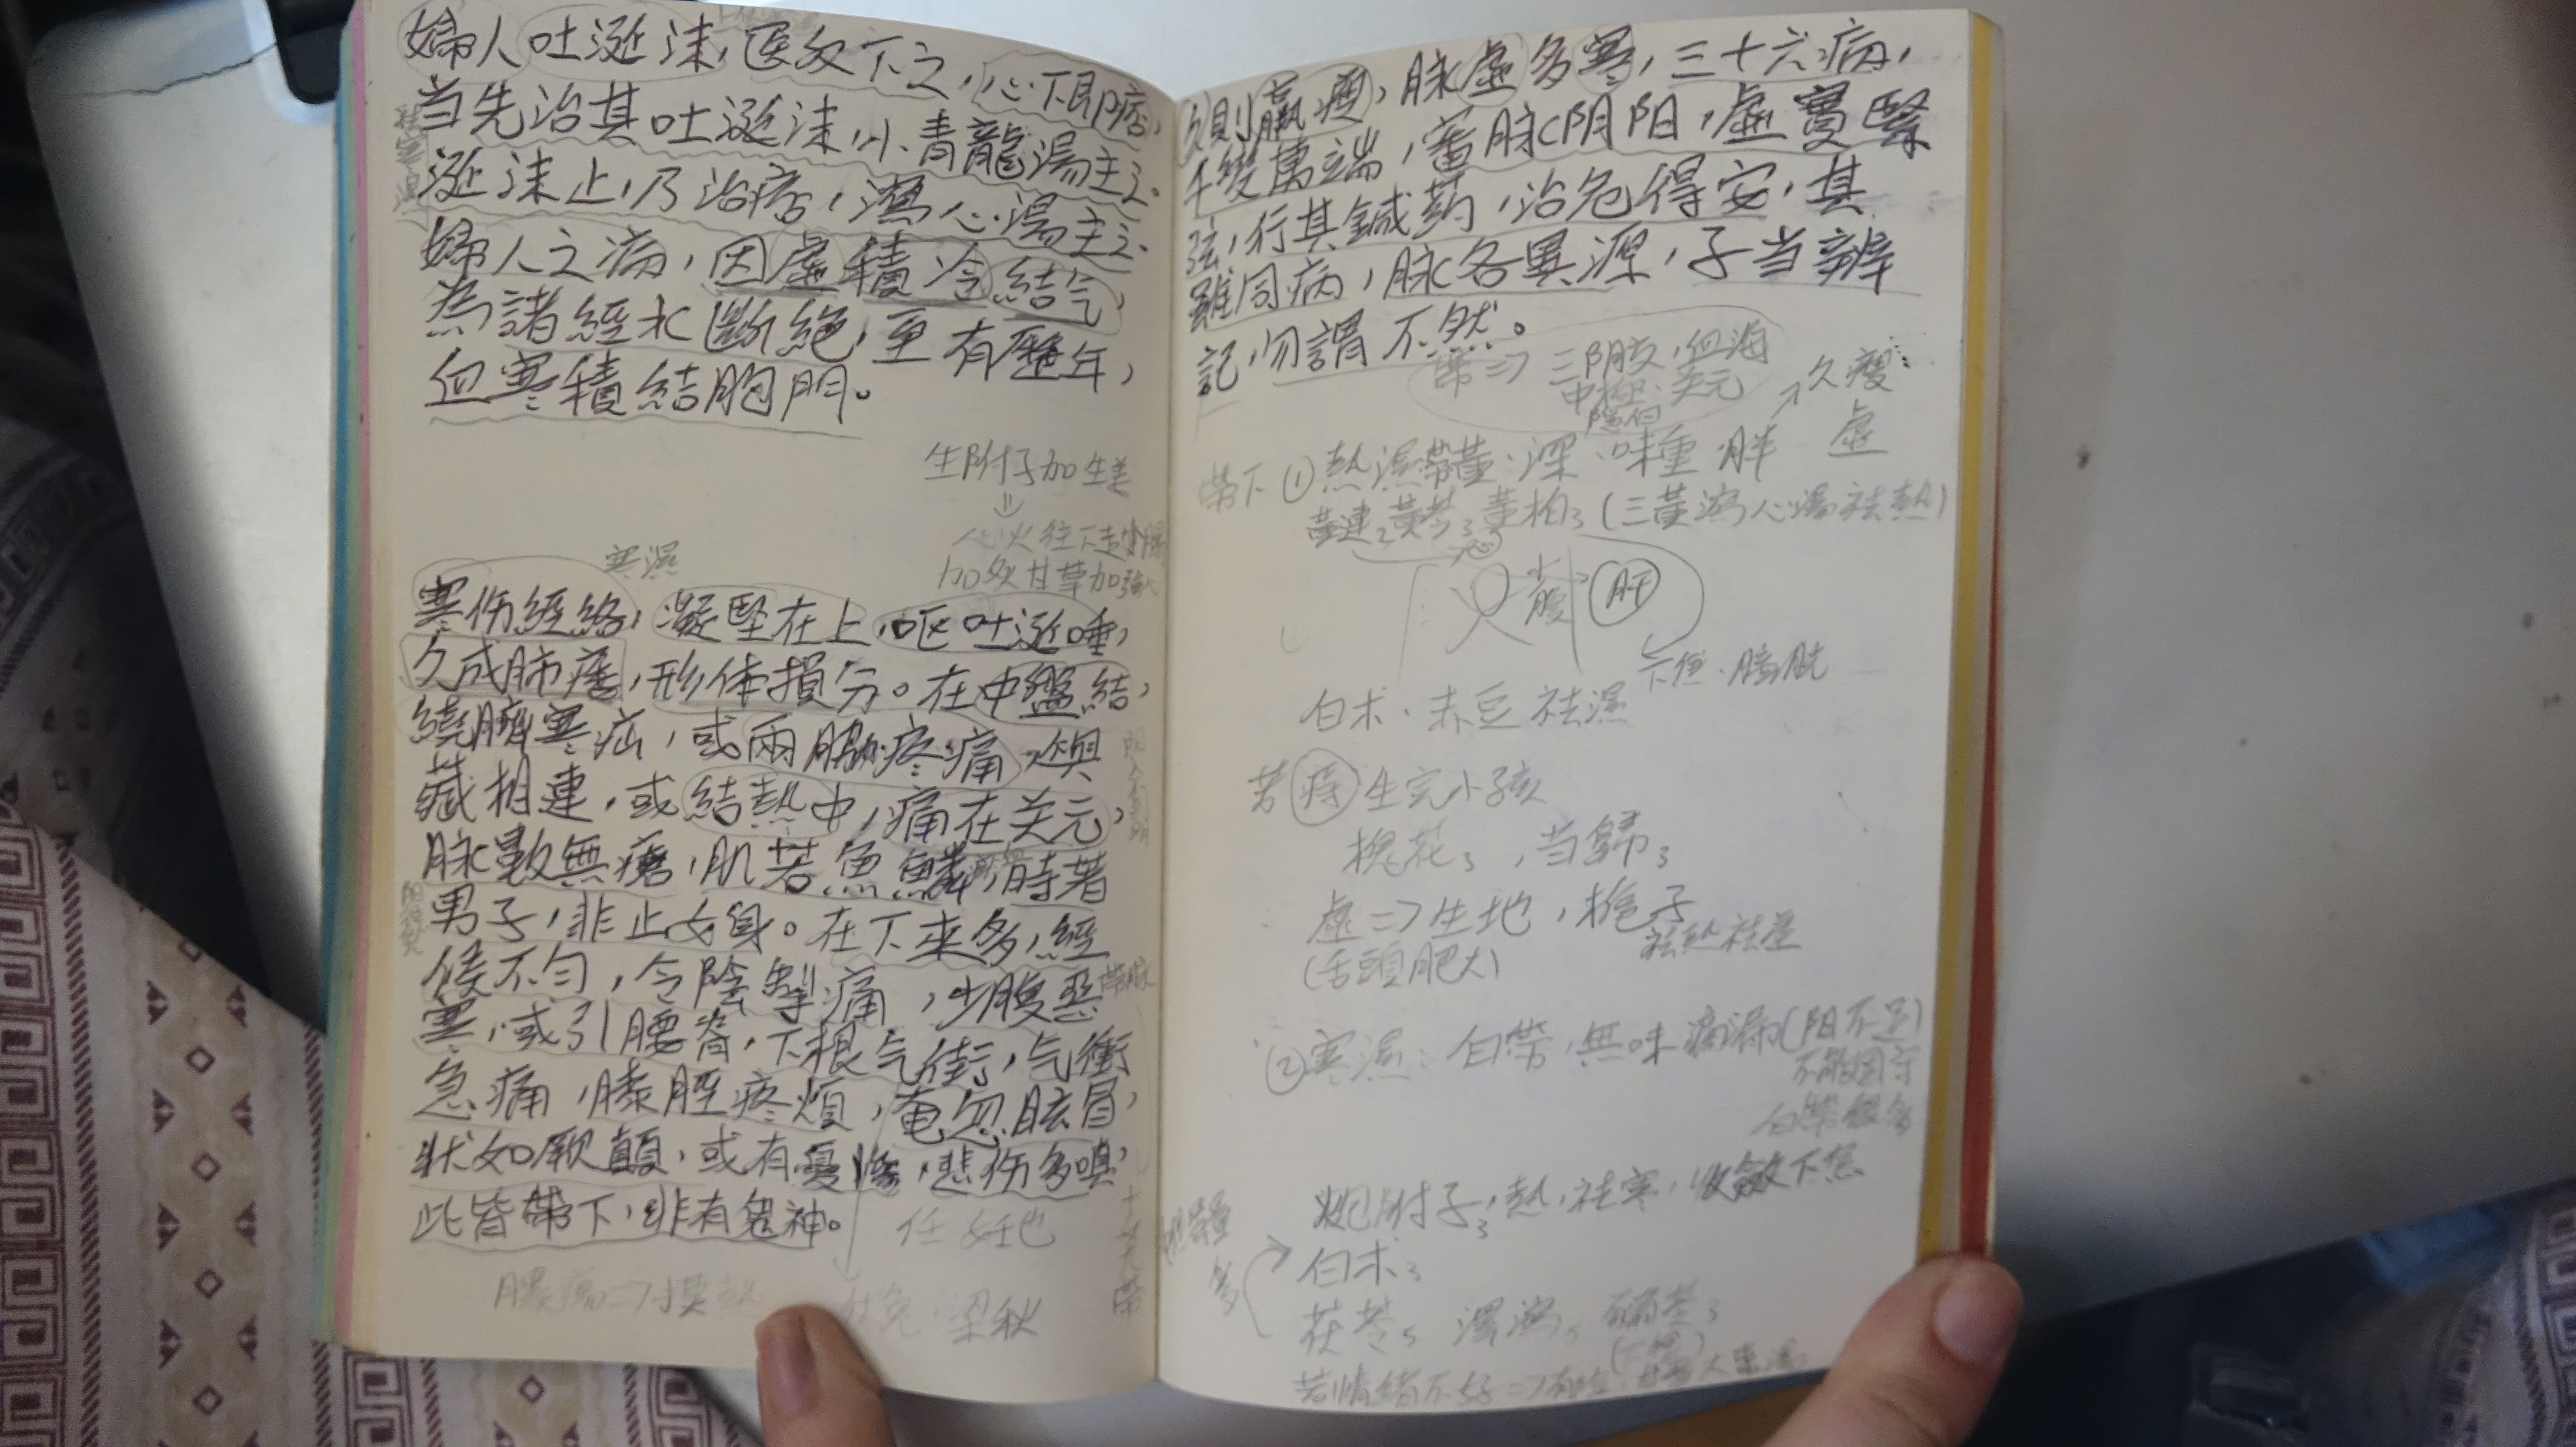 婦人吐涎沫，医反下之，心下即痞，
当先治其吐涎沫，小青龍湯主之。
涎沫止，乃治痞，瀉心湯主之。
婦人之病，因虛積冷結气，
為諸經水斷絕，至有歷年，
血寒積結胞門。
生附子加生姜
心火往下走小腸
加炙甘草加強心
寒濕
寒伤經絡，凝堅在上，呕吐涎唾，
久成肺痿，形体損分。在中盤結，
繞臍寒疝，或兩脇疼痛，與
藏相連，或結熱中，痛在关元，
脉數無瘡，肌若魚鱗，時著
男子，非止女身。在下來多，經
候不匀，令陰掣痛，少腹惡
寒，或引腰脊，下根气街，气衝
急痛，膝脛疼煩，奄忽眩冒，
狀如厥顛，或有憂慘，悲伤多嗔，
此皆帶下，非有鬼神。
帶脉
任 妊也
梁秋
久則羸瘦，脉虛多寒，三十六病，
千變萬端，審脉阴阳，虛實緊
弦，行其鍼药，治危得安，其
雖同病，脉各異源，子当辨
記，勿謂不然。
帶=> 三阴交，血海
中極 关元
隱白
→久瘦
虛
帶下 ①熱濕 帶黃 深 味重 胖
黃連2 黃芩3 黃柏3 (三黃瀉心湯祛熱)
小腹 肝
下焦 膀胱
白朮、赤豆 祛濕
若痔 生完小孩
槐花3，当歸3
虛=>生地，梔子
祛熱祛濕
(舌頭肥大)
②寒濕：白帶，無味 滴漏(阳不足)
不能固守
白帶很多
炮附子3，熱，祛寒，收斂下焦
白朮3
茯苓5 澤瀉5
若情緒不好=> 甘麥大棗湯